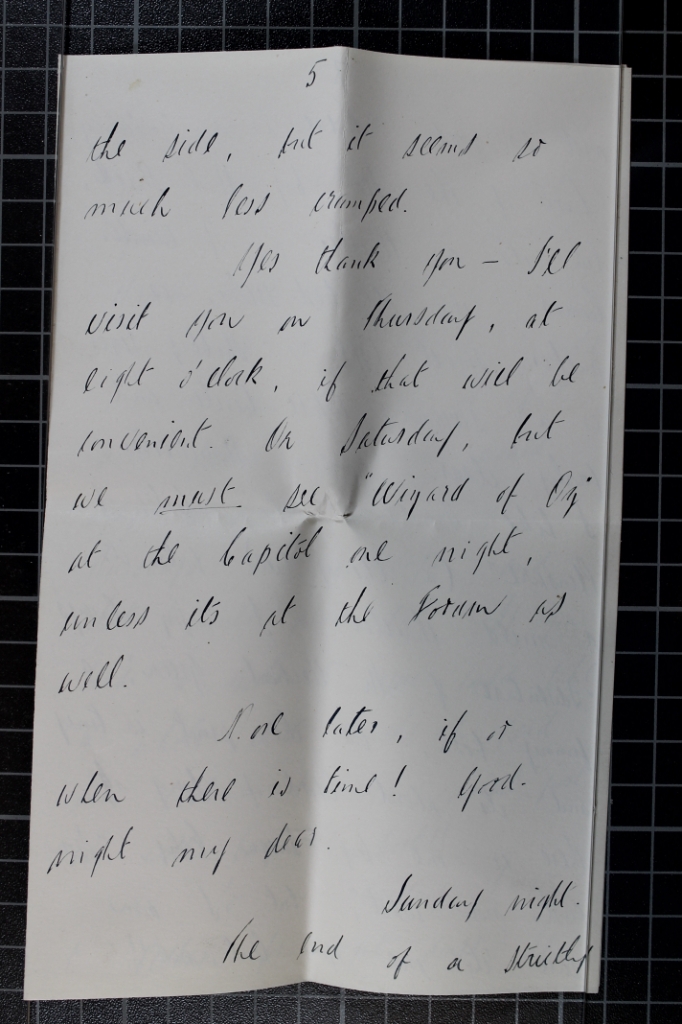 5
the side, but it seems so
much less cramped.
Yes thank you – I'll
visit you on Thursday, at
eight o'clock, if that will be
convenient. Or Saturday, but
we must see "Wizard of Oz"
at the Capitol one night,
unless it's at the Forum as
well.
More later, if or
when there is time! Good-
night my dear.
Sunday night.
The end of a strictly